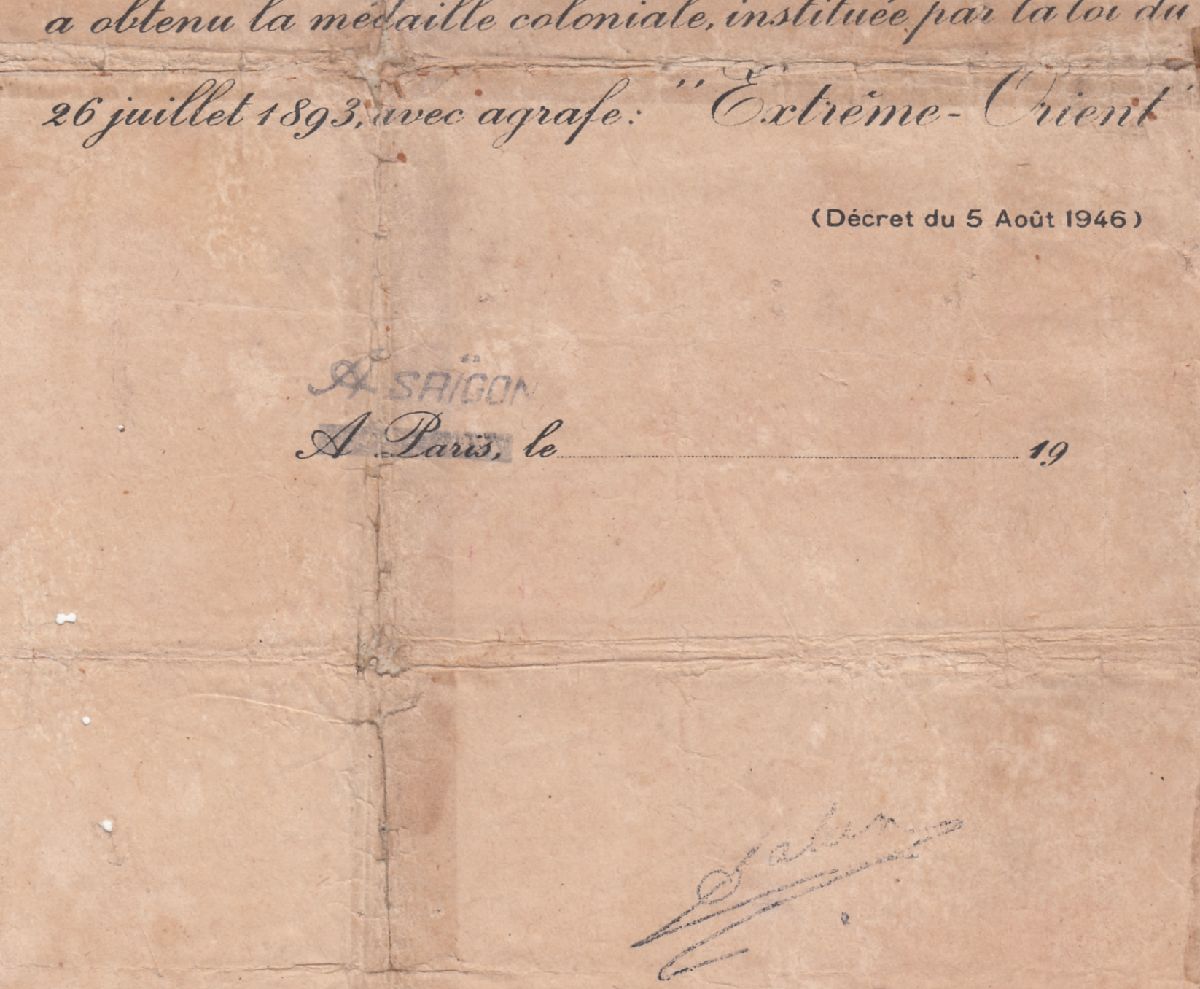 a obtenu la médaille coloniale, instituée par la loi du
26 juillet 1893, avec agrafe: "Extrême-Orient"
(Décret du 5 Août 1946)
A SAÏGON
A Paris, le 19
Salan